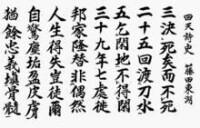 回天詩史 藤田東湖
三決死矣而不死
二十五回渡刀水
五乞閑地不得閑
三十九年七處徙
邦家隆替非偶然
人生得失豈徒爾
自驚塵垢盈皮膚
猶餘忠義填骨髓